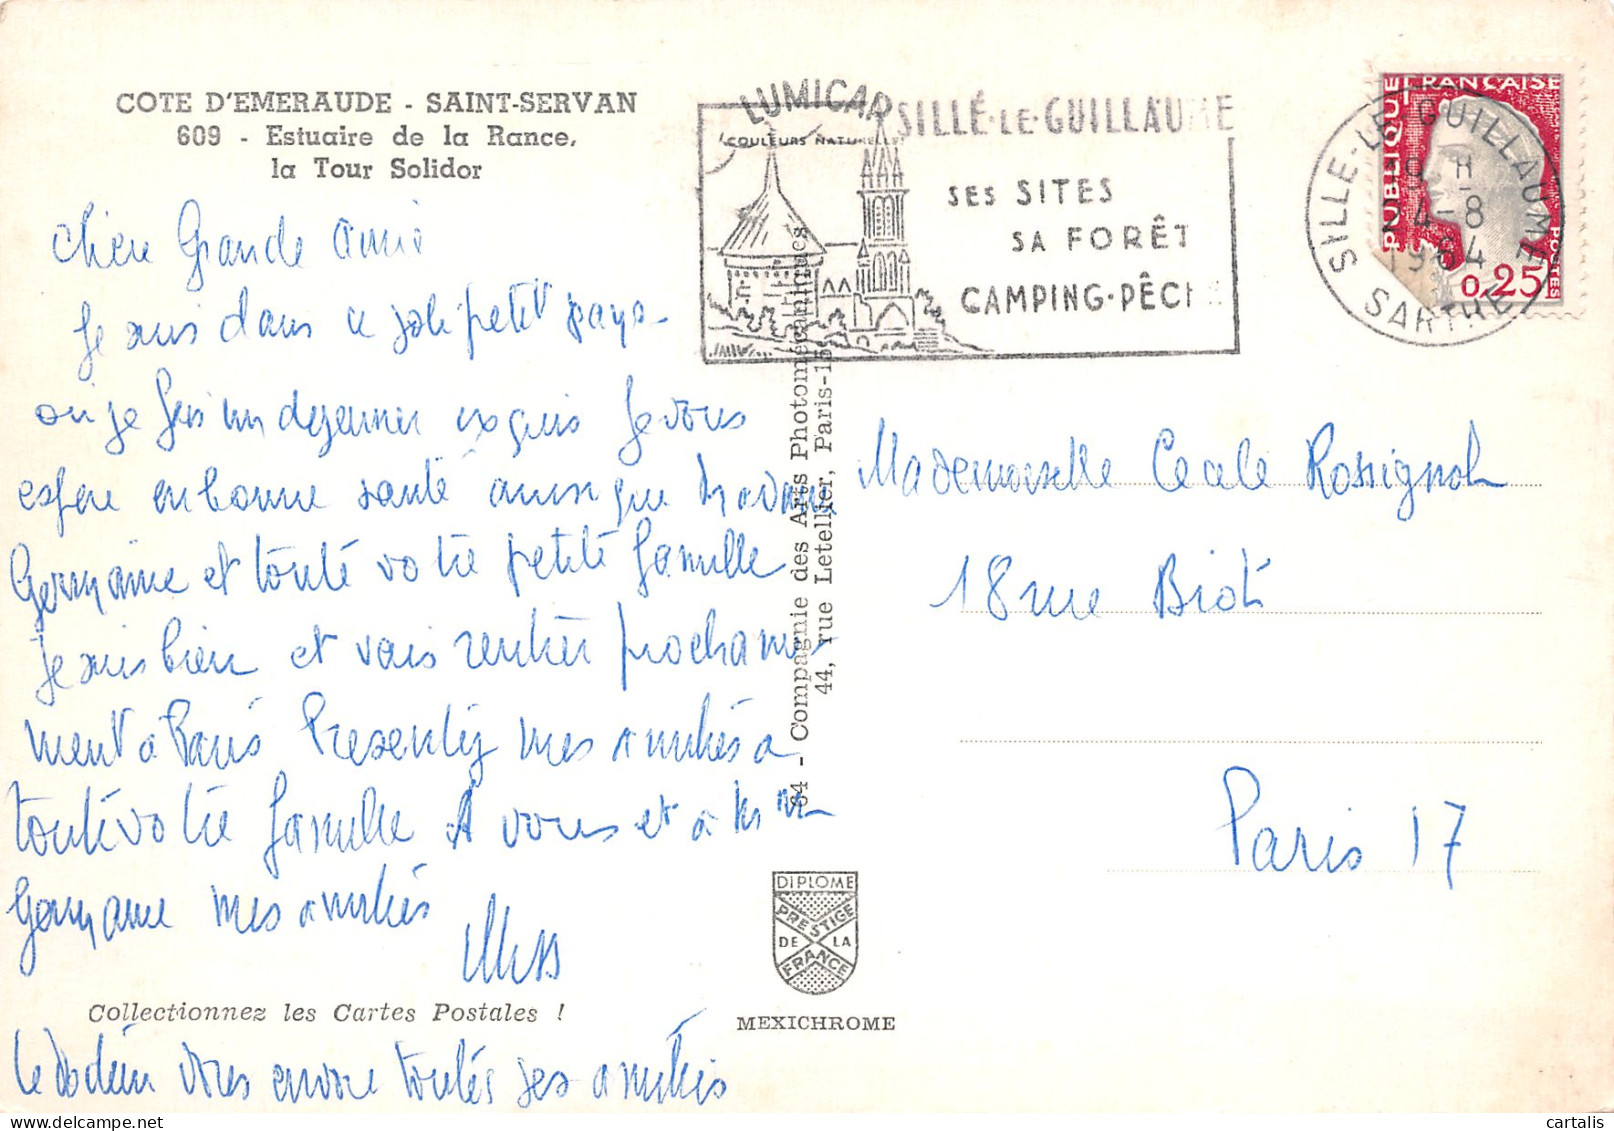 COTE D'EMERAUDE - SAINT-SERVAN
609 - Estuaire de la Rance,
la Tour Solidor
Chère Grande Amie
Je suis dans ce joli petit pays
où je fais un dejeuner exquis Je vous
espere en bonne santé ainsi que Madame
Germaine et toute votre petite famille
Je suis bien et vais rentrer prochaine
ment à Paris Presentez mes amitiés a
toute votre famille A vous et à Mme
Germaine mes amitiés
Collectionnez les Cartes Postales !
le docteur vous envoie toutes ses amitiés
LUMICAP
COULEURS NATURELLES
SILLÉ-LE-GUILLAUME
SES SITES
SA FORÊT
CAMPING-PÊCHE
64 - Compagnie des Arts Photomécaniques
44, rue Letellier, Paris-15
DIPLOME
PRESTIGE
DE LA
FRANCE
MEXICHROME
REPUBLIQUE FRANÇAISE
POSTES
0,25
SILLE-LE-GUILLAUME
19 H
24-8
1964
SARTHE
Mademoiselle Cecile Rossignol
18 rue Biot
Paris 17
cartalis